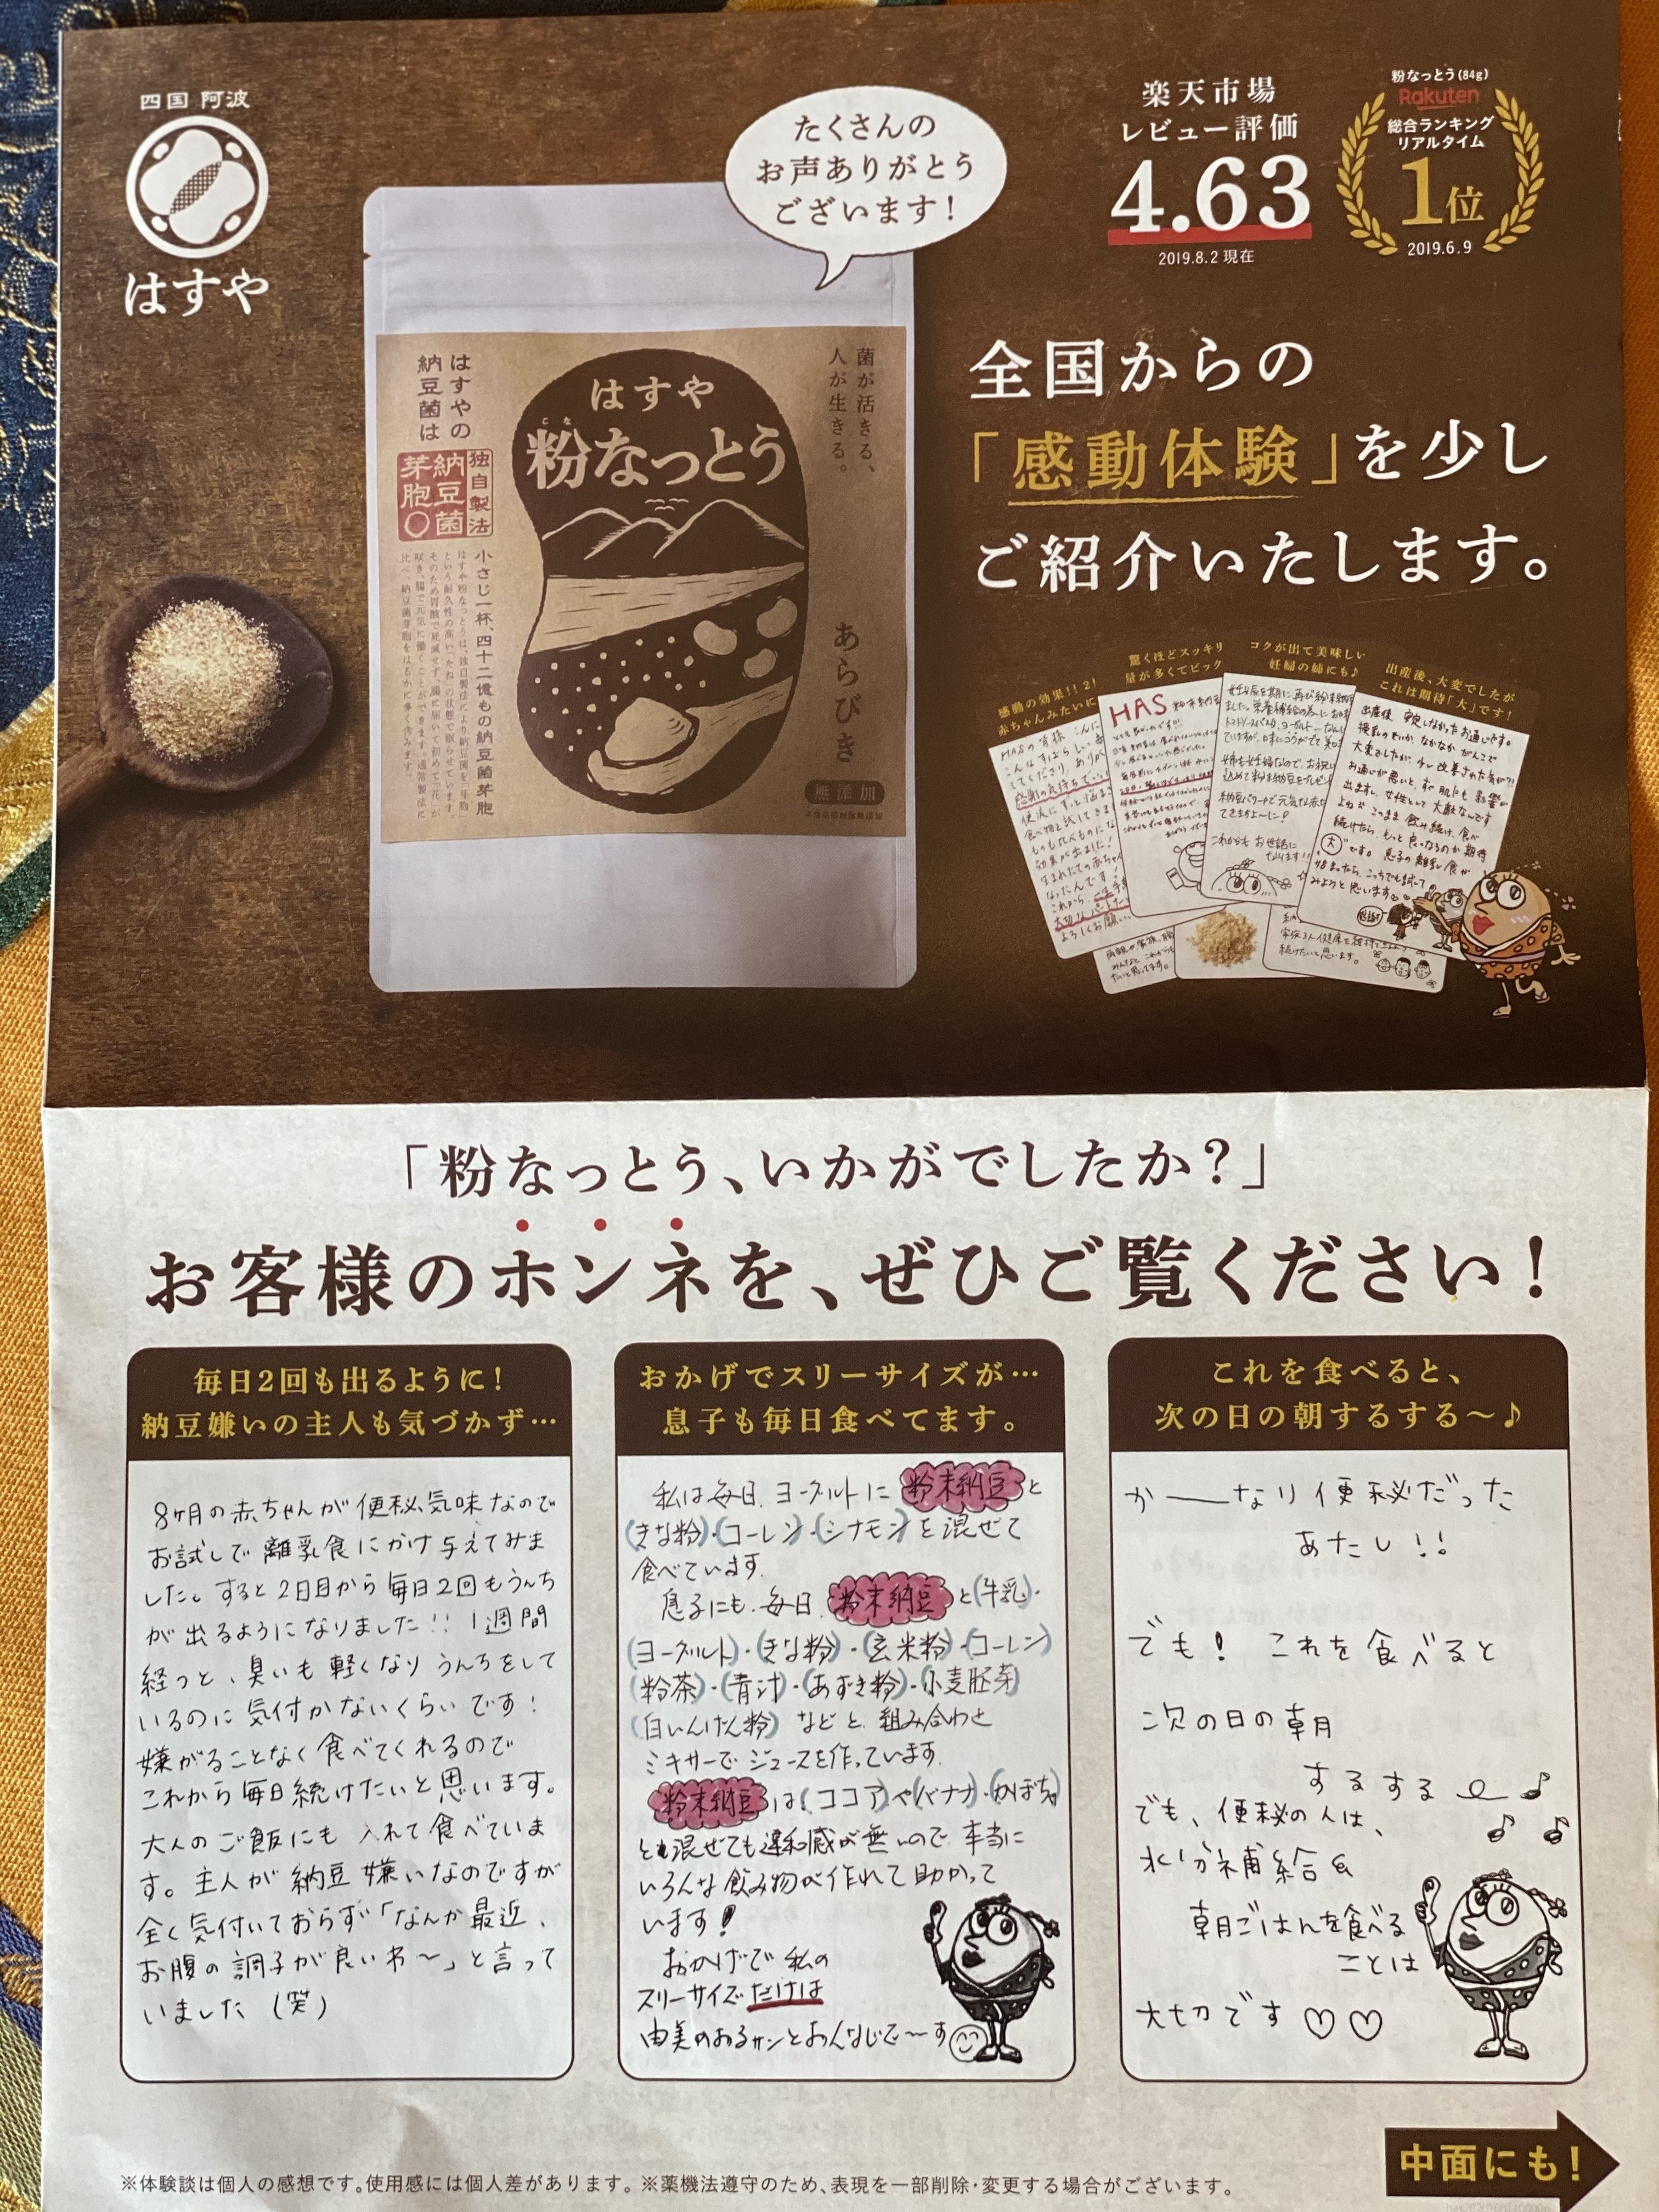 四国 阿波
はすや
たくさんの
お声ありがとう
ございます!
楽天市場
レビュー評価
4.63
2019.8.2 現在
粉なっとう(84g)
Rakuten
総合ランキング
リアルタイム
1位
2019.6.9
菌が活きる、
人が生きる。
はすや
こな
粉なっとう
あらびき
無添加
はすやの
納豆菌は
独自製法
納豆菌
芽胞〇
小さじ一杯、四十二億もの納豆菌芽胞
全国からの
「感動体験」を少し
ご紹介いたします。
感動の効果!! 2!
赤ちゃんみたいに
驚くほどスッキリ
量が多くてビック
コクが出て美味しい
妊婦の姉にも♪
出産後、大変でしたが
これは期待「大」です!
HAS
「粉なっとう、いかがでしたか?」
お客様のホンネを、ぜひご覧ください!
毎日2回も出るように!
納豆嫌いの主人も気づかず…
8ヶ月の赤ちゃんが便秘気味なので
お試しで離乳食にかけ与えてみま
した。すると2日目から毎日2回もうんち
が出るようになりました!! 1週間
経つと、臭いも軽くなりうんちをして
いるのに気付かないくらいです!
嫌がることなく食べてくれるので
これから毎日続けたいと思います。
大人のご飯にも入れて食べていま
す。主人が納豆嫌いなのですが
全く気付いておらず「なんか最近、
お腹の調子が良いわ~」と言って
いました(笑)
おかげでスリーサイズが…
息子も毎日食べてます。
私は毎日、ヨーグルトに粉末納豆と
(きな粉)・(コーレン)・(シナモン)を混ぜて
食べています。
息子にも、毎日、粉末納豆と(牛乳)・
(ヨーグルト)・(きな粉)・(玄米粉)・(コーレン)
(粉茶)・(青汁)・(あずき粉)・(小麦胚芽)
(白いんげん粉)などと、組み合わせ
ミキサーでジュースを作っています。
粉末納豆は(ココア)や(バナナ)・(かぼちゃ)
とも混ぜても違和感が無いので、本当に
いろんな飲み物が作れて助かって
います!
おかげで私の
スリーサイズだけは
由美かおるサンとおんなじで~す
これを食べると、
次の日の朝するする~♪
か――なり便秘だった
あたし!!
でも! これを食べると
次の日の朝
するする~♪
でも、便秘の人は、
水分補給&
朝ごはんを食べる
ことは
大切です♡♡
※体験談は個人の感想です。使用感には個人差があります。※薬機法遵守のため、表現を一部削除・変更する場合がございます。
中面にも!